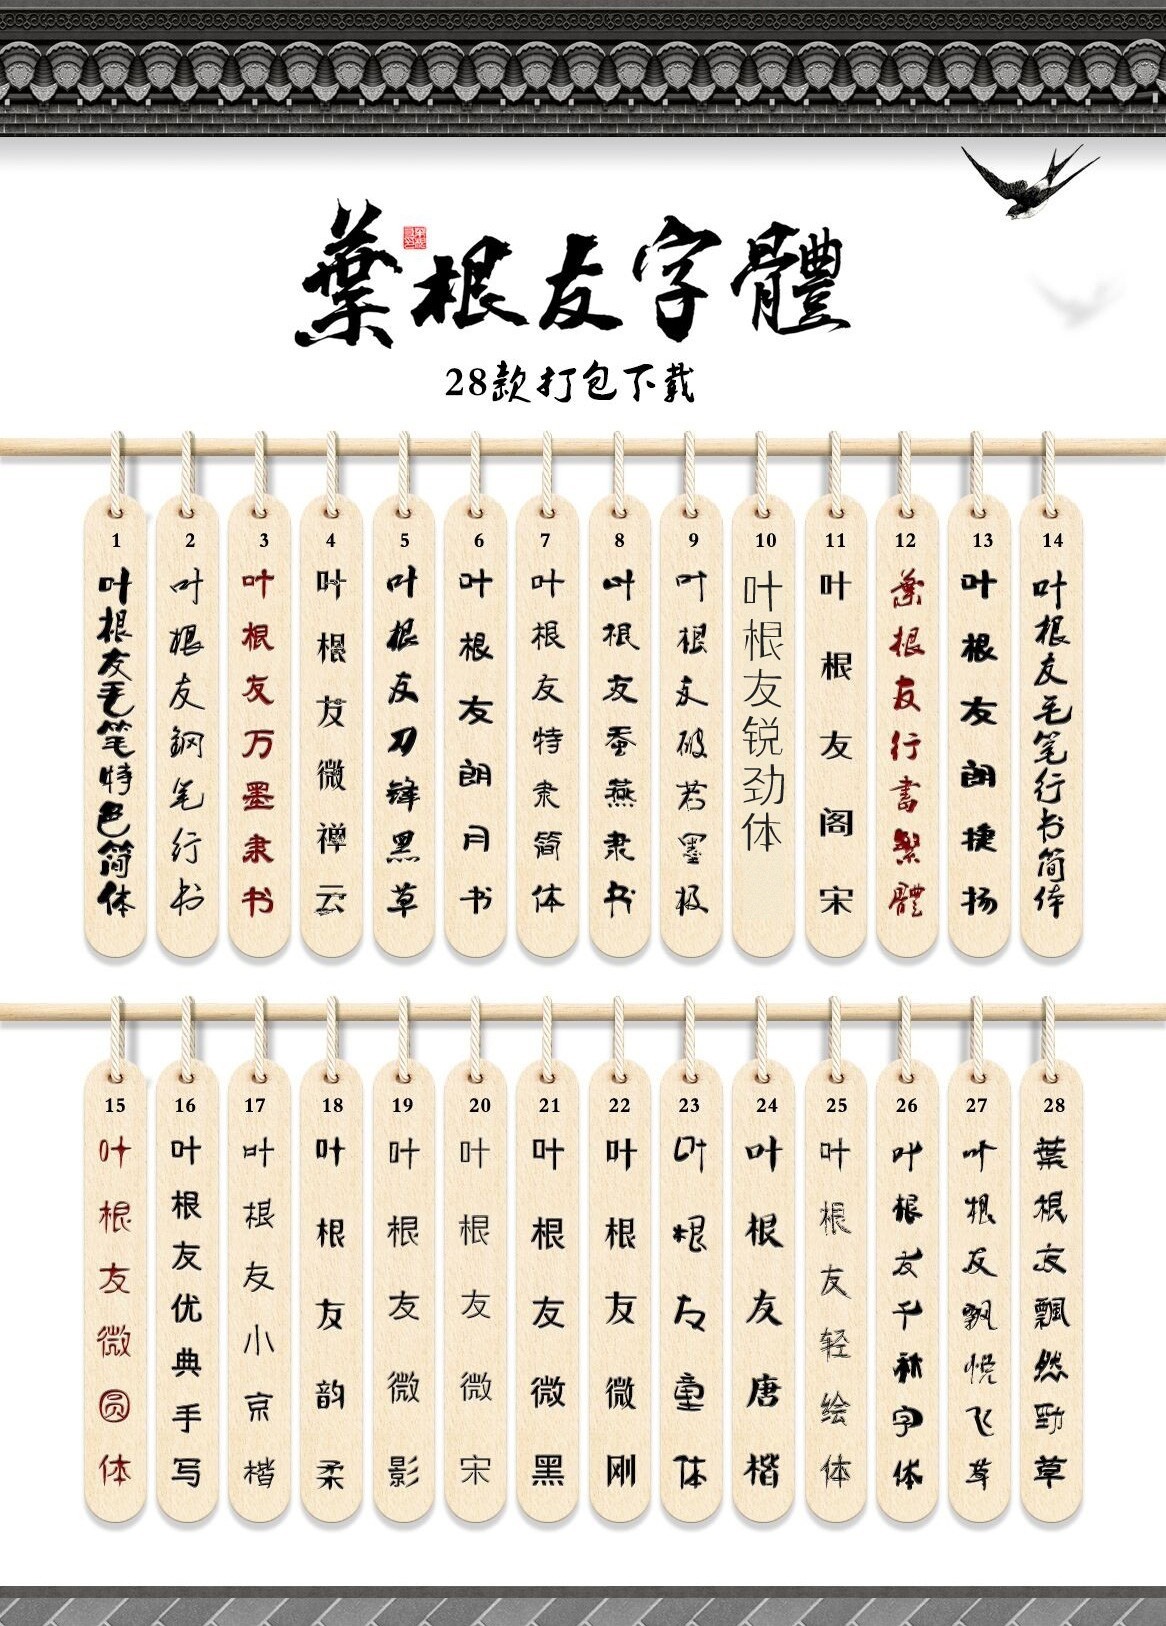 葉根友字體
28款打包下载
1
叶根友毛笔特色简体
2
叶根友鋼笔行书
3
叶根友万墨隶书
4
叶根友微禅云
5
叶根友刀锋黑草
6
叶根友朗月书
7
叶根友特隶简体
8
叶根友蚕燕隶书
9
叶根友破若墨极
10
叶根友锐劲体
11
叶根友阁宋
12
葉根友行書繁體
13
叶根友朗捷扬
14
叶根友毛笔行书简体
15
叶根友微圆体
16
叶根友优典手写
17
叶根友小京楷
18
叶根友韵柔
19
叶根友微影
20
叶根友微宋
21
叶根友微黑
22
叶根友微刚
23
叶根友童体
24
叶根友唐楷
25
叶根友轻绘体
26
叶根友千秋字体
27
叶根友飘悦飞草
28
葉根友飄然勁草